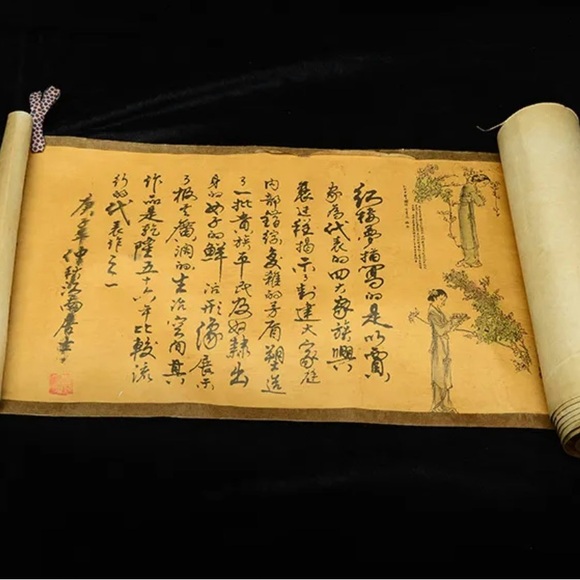 红楼夢描寫的是以賈
家为代表的四大家族興
衰过程揭示了封建大家庭
内部错综复雜的矛盾塑造
了一批贵族平民及奴隸出
身的女子的鲜活形像展示
了极其廣濶的生活空间其
作品是乾隆五十六年比較流
行的代表作之一
庚